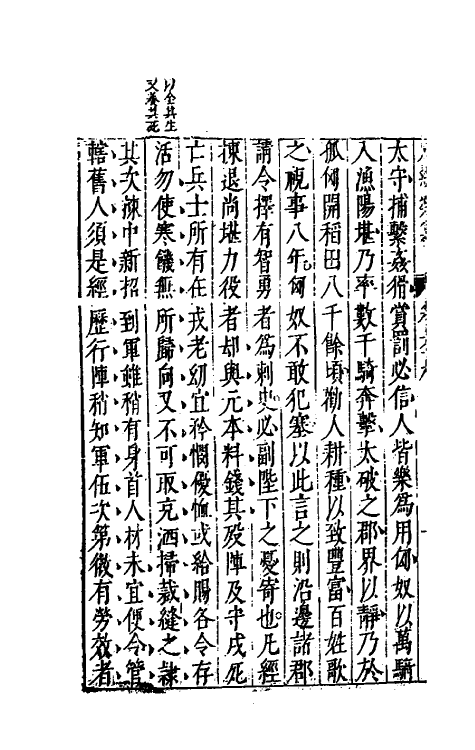 以全其生
又養其死
太守捕繫姦猾賞罰必信人皆樂為用匈奴以萬騎
入漁陽堪乃率數千騎奔擊大破之郡界以靜乃於
狐何開稻田八千餘頃勸人耕種以致豐富百姓歌
之視事八年匈奴不敢犯塞以此言之則沿邊諸郡
請令擇有智勇者為刺史必副陛下之憂寄也凡經
揀退尚堪力役者却與元本料錢其歿陣及守戍死
亡兵士所有在戎老幼宜矜憫優恤或給賜各令存
活勿使寒饑無所歸向又不可取充洒掃裁縫之隷
其次揀中新招到軍雖稍有身首人材未宜便令管
轄舊人須是經歷行陣稍知軍伍次第微有勞效者